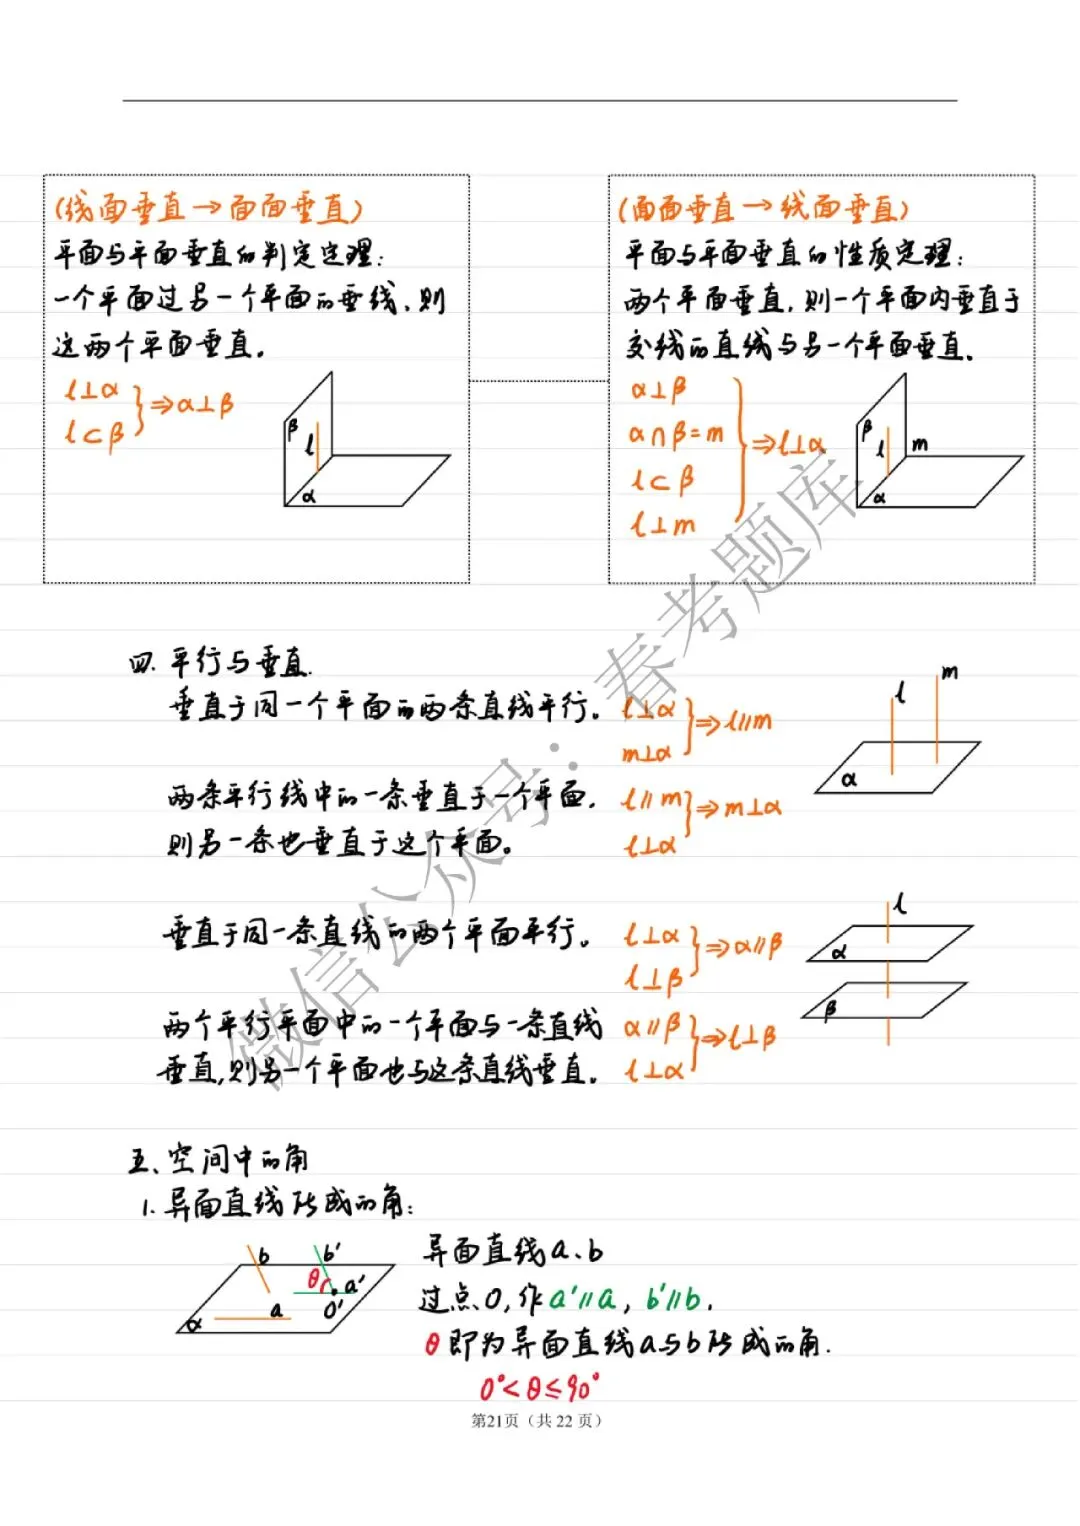 (线面垂直→面面垂直)
平面与平面垂直的判定定理:
一个平面过另一个平面的垂线,则
这两个平面垂直。
l⊥α
l⊂β
⇒α⊥β
β
l
α
(面面垂直→线面垂直)
平面与平面垂直的性质定理:
两个平面垂直,则一个平面内垂直于
交线的直线与另一个平面垂直。
α⊥β
α∩β=m
l⊂β
l⊥m
⇒l⊥α
β
l
m
α
四.平行与垂直.
垂直于同一个平面的两条直线平行。
l⊥α
m⊥α
⇒l∥m
l
m
α
两条平行线中的一条垂直于一个平面,
则另一条也垂直于这个平面。
l∥m
l⊥α
⇒m⊥α
垂直于同一条直线的两个平面平行。
l⊥α
l⊥β
⇒α∥β
l
α
β
两个平行平面中的一个平面与一条直线
垂直,则另一个平面也与这条直线垂直。
α∥β
l⊥α
⇒l⊥β
五、空间中的角
1.异面直线所成的角:
b
b′
θ
a′
a
O′
α
异面直线a、b
过点O,作a′∥a,b′∥b,
θ即为异面直线a与b所成的角.
0°<θ≤90°
第21页(共 22 页)
微信公众号:春考题库